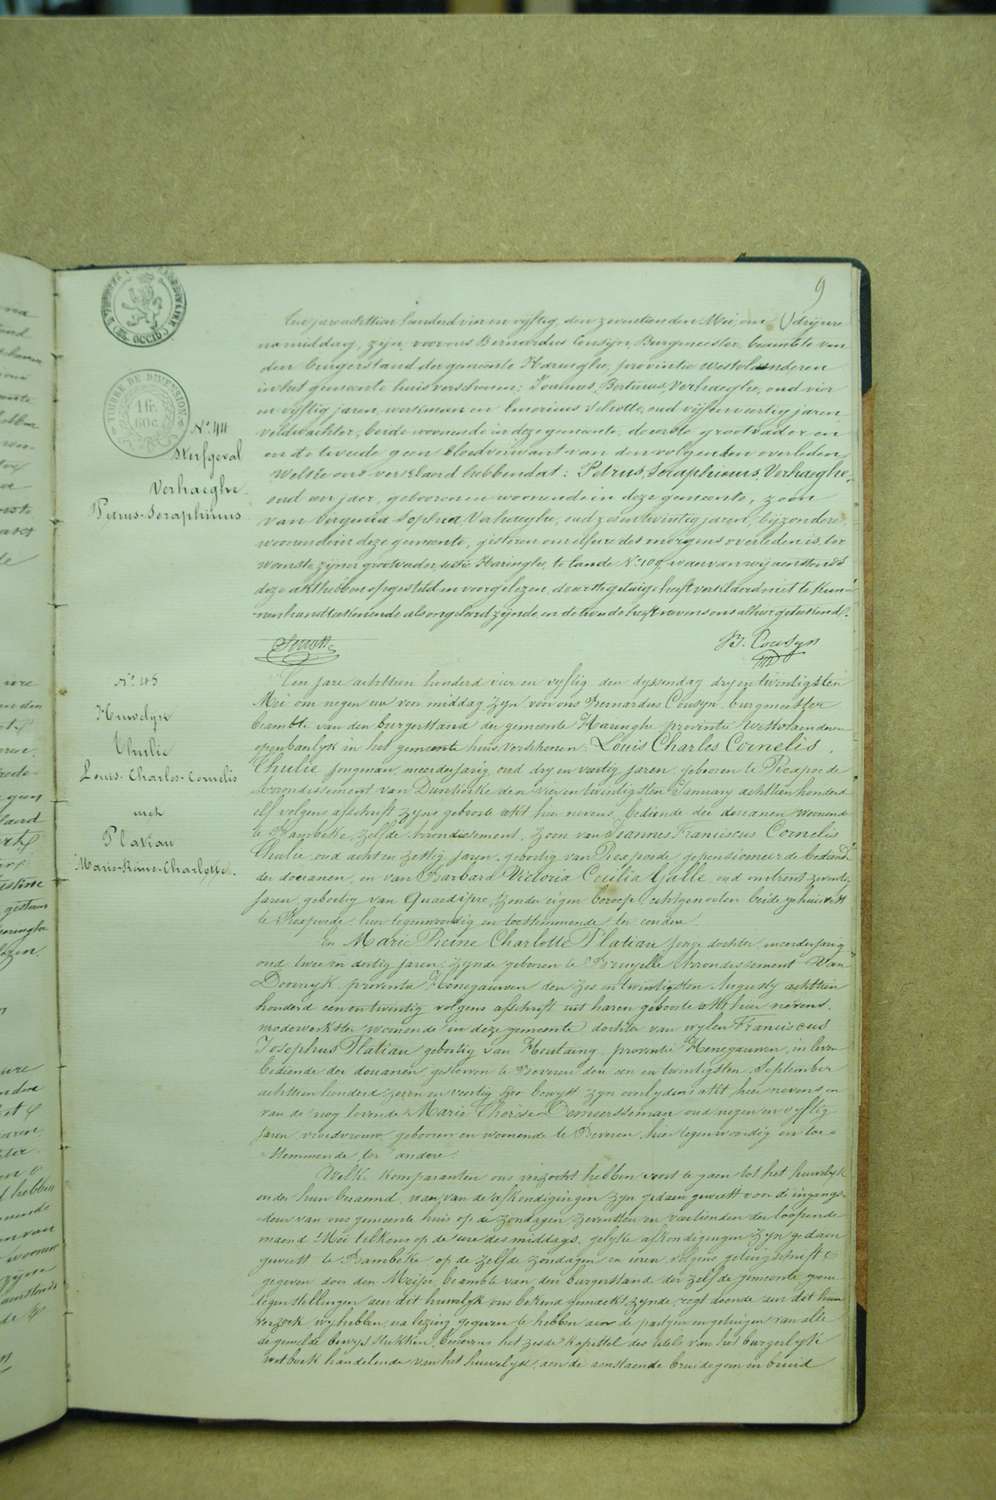 9
TIMBRE DE DIMENSION
1 fr.
60 c.
N° 44
Sterfgeval
Verhaeghe
Petrus-Seraphinus
Een jare achttien honderd vier en vyftig den zeventienden Mei, om drij ure
namiddag, zijn voor ons Bernardus Cousyn, Burgmeester, beambte van
den burgerstand der gemeente Haringhe, provintie Westvlaanderen
in het gemeente huis verschenen: Joannes Verhaeghe, oud vier
en vyftig jaren, werkman en Schotte, oud vijf en veertig jaren
veldwachter, beide woonende in deze gemeente, de eerste grootvader en
en de tweede geen bloedverwant van den volgenden overleden,
Welke ons verklaard hebben dat: Petrus, Seraphinus, Verhaeghe,
oud een jaer, geboren en woonende in deze gemeente, zoon
van Virginia Sophia Verhaeghe, oud zes en twintig jaren, bijzondere
woonende in deze gemeente, gisteren om elf ure des morgens overleden is, ter
woonste zijner grootvader, sectie Haringhe, te lande N° 109, waer van wij aenstonds
deze akt hebben opgesteld en voorgelezen, de eerste getuige heeft verklaerd niet te kun-
nen handteekenende als ongeleerd zijnde, en de tweede heeft nevens ons alhier geteekend.
Schotte
B. Cousyn
N° 45
Huwelyk
Thulie
Louis-Charles-Cornelis
met
Platiau
Marie-Reine-Charlotte.
Een jare achttien honderd vier en vyftig den dyssendag dry en twintigsten
Mei om negen ure voor middag zyn voor ons Bernardus Cousyn burgmeester
beambte van den burgerstand der gemeente Haringhe provintie Westvlaenderen
openbaerlyk in het gemeente huis verschenen. Louis Charles Cornelis
Thulie jongman, meerderjarig, oud dry en veertig jaren, geboren te Rexpoede
Arrondissement van Duinkerke den vier en twintigsten January achttien honderd
elf volgens afschrift zyne geboorte akt hier nevens, bediende der douanen woonende
te Bambeke zelfde arrondissement, zoon van Joannes Franciscus Cornelis
Thulie oud acht en zestig jaren, geboortig van Rexpoede, gepensioneerde bediende
der douanen, en van Barbara Victoria Cecilia Galle, oud omtrent zeventig
jaren geboortig van Quaedipre, zonder eigen beroep, echtgenooten beide gehuisvest
te Rexpoede hier tegenwoordig en toestemmende ter eendere.
En Marie Reine Charlotte Platiau jonge dochter, meerderjarig
oud twee en dertig jaren, zynde geboren te Bruyelle Arrondissement van
Doornyk, provintie Henegauwen den zes en twintigsten Augusty achttien
honderd een en twintig volgens afschrift uit haren geboorte akt hier nevens,
modewerkster woonende in deze gemeente dochter van wylen Franciscus
Josephus Platiau geboortig van Houtaing, provintie Henegauwen, in leven
bediende der douanen, gestorven te Beveren den een en twintigsten September
achttien honderd zeven en veertig by bewys zyn overlydens akt hier nevens en
van de nog levende Marie Therese Demeersseman oud negen en vyftig
jaren weedvrouw geboren en woonende te Beveren, hier tegenwoordig en toe-
stemmende ter andere.
Welke komparanten ons verzocht hebben voort te gaen tot het huwelyk
onder hun beraemd, waer van de afkondigingen zyn gedaen geweest voor de ingang-
deur van ons gemeente huis op de zondagen zevensten en veertienden der loopende
maend Mei telkens op de ure des middags, gelyke afkondigingen zyn gedaen
geweest te Bambeke op de zelfde zondagen en uren volgens getuigschrift
gegeven door den Meijer, beambte van den burgerstand der zelfde gemeente, geene
tegenstellingen aen dit huwelyk ons bekend gemaekt zynde, regt doende aen dit hun
verzoek wy hebben, na lezing gegeven te hebben aen de partyen en getuigen van alle
de gemelde bewys stukken, benevens het zesde kapittel des titels van het burgerlyk
wetboek handelende van het huwelyk, aen de aenstaende bruidegom en bruid